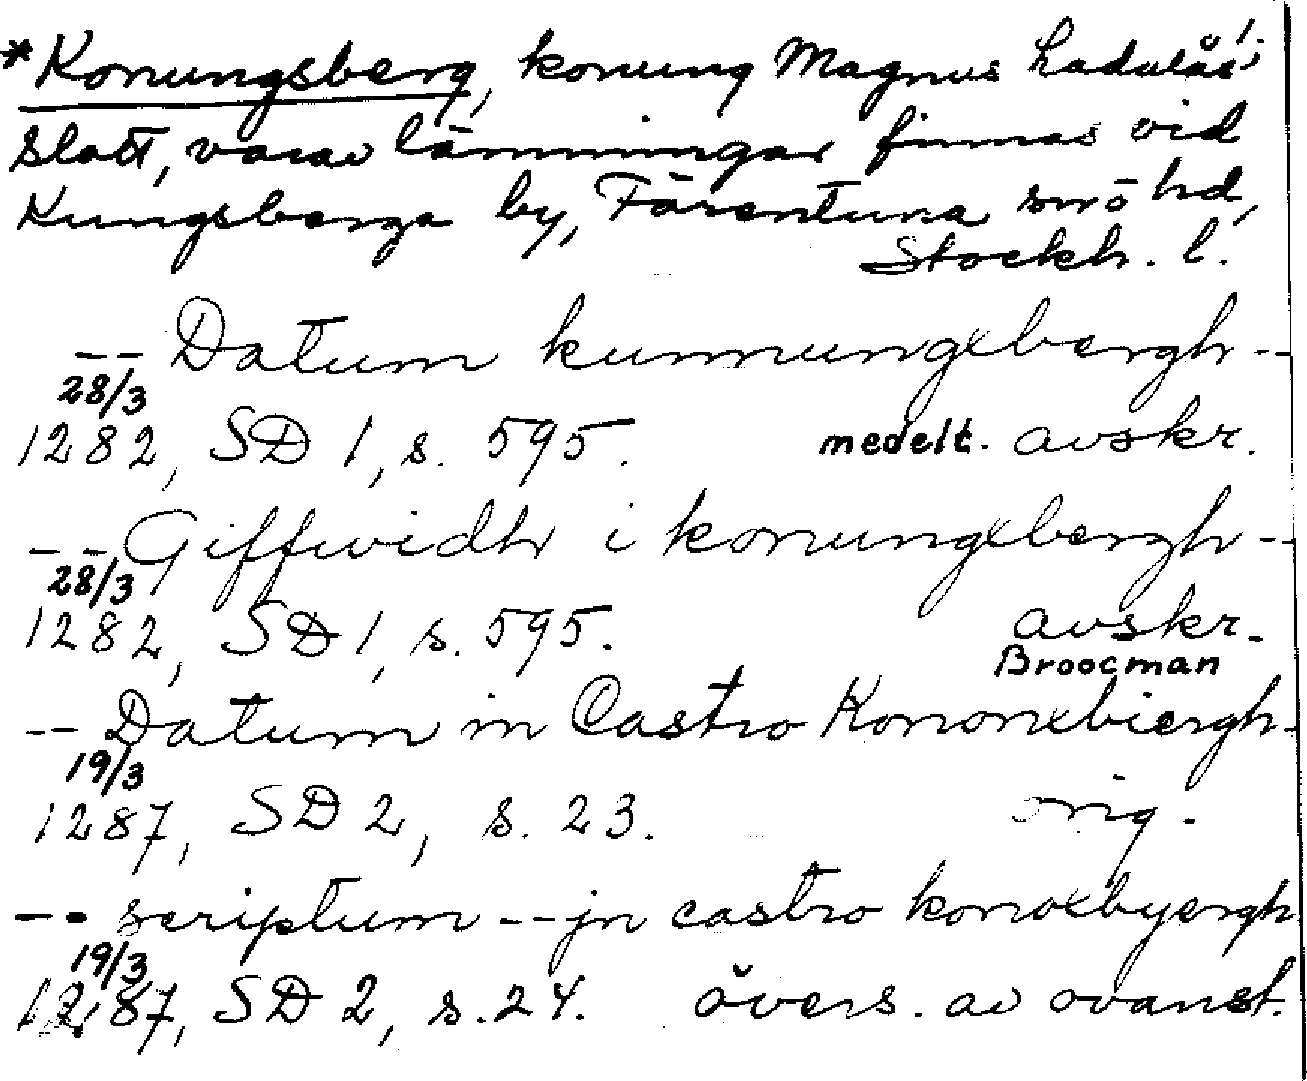 *Konungsberg, konung Magnus Ladulås'
slott, varav lämningar finnas vid
Kungsberga by, Färentuna snö hd,
Stockh. l.
-- Datum kunnungxbergh --
28/3
1282, SD 1, s. 595. medelt. avskr.
-- Giffwidh i konungxbergh --
28/3
1282, SD 1, s. 595. avskr.
Broocman
-- Datum in Castro Kononxbiergh-
19/3
1287, SD 2, s. 23. orig.
-- scriptum -- jn castro konoxbyergh
19/3
1287, SD 2, s. 24. övers. av ovanst.